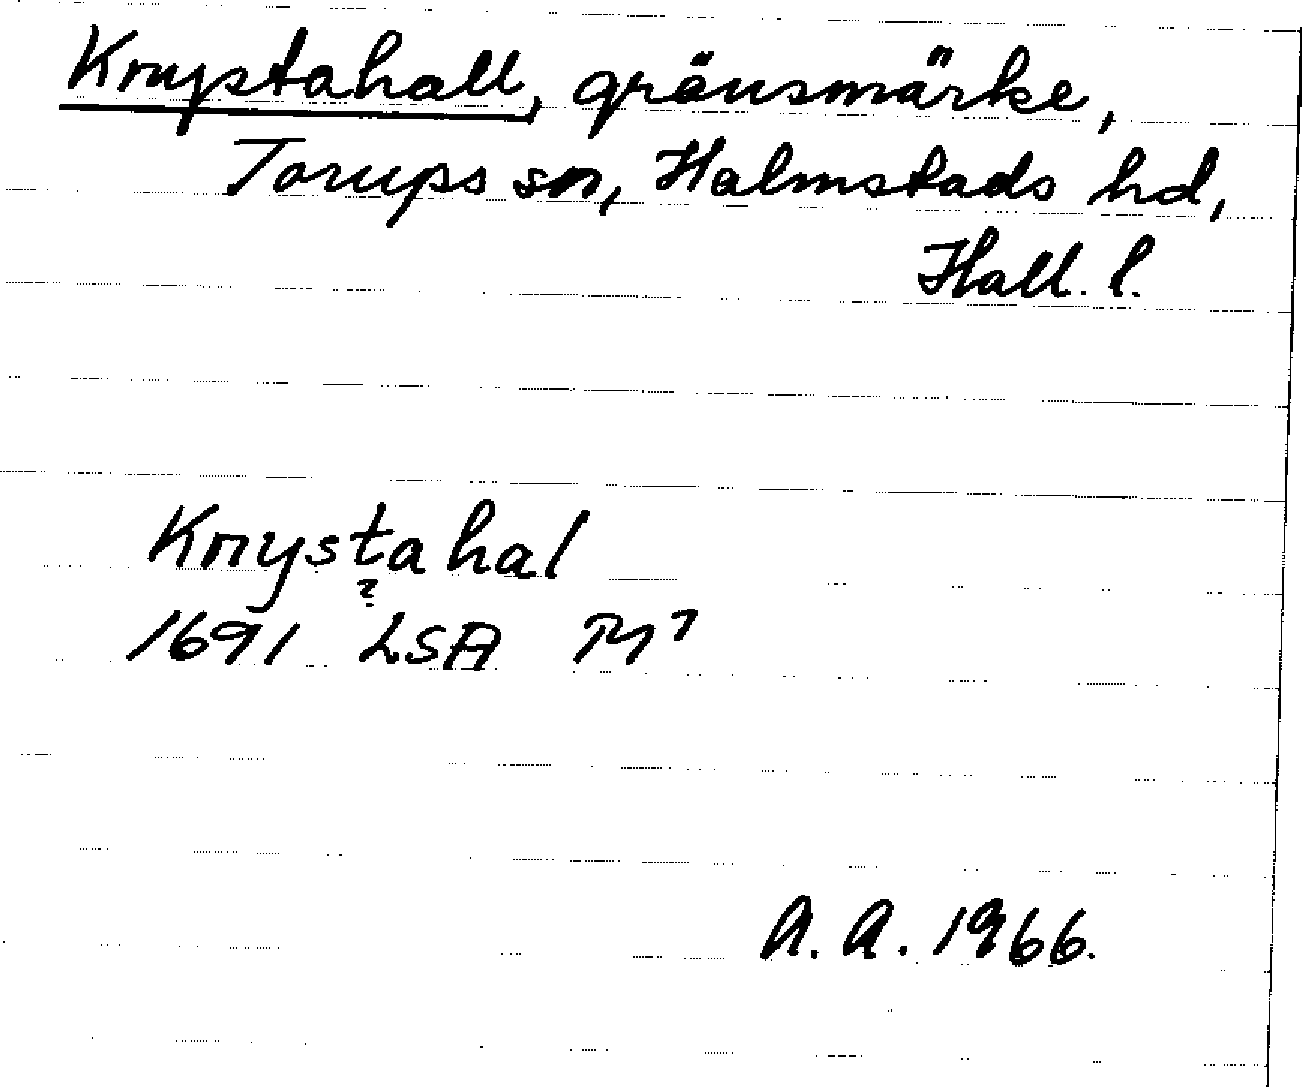 Knystahall, gränsmärke,
Torups sn, Halmstads hd,
Hall. l.
Knystahal
?
1691 LSA M⁷
A. A. 1966.